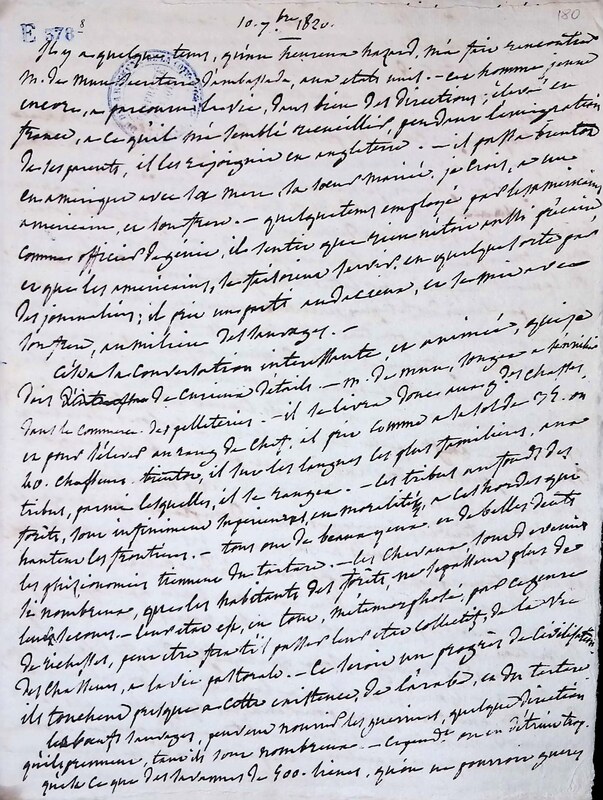 E 376 8
10. 7bre 1820.
180
Il y a quelque tems, qu'un heureux hazard, m'a fait rencontrer
M. de Mun secrétaire d'ambassade, aux etats unis. - cet homme, jeune
encore, a parcouru la vie, dans bien des directions; élevé en
france, à ce qu'il m'a semblé recueilli, pendant l'émigration
de ses parents, il les rejoignit en angleterre. - il passa bientôt
en amérique avec sa mere, sa soeur mariée, je crois, a un
americain, et son frere. - quelque tems employé par les américains
comme officier du génie, il sentit que rien n'étoit aussi précaire
et que les americains, se faisoient servir en quelque sorte par
des journaliers; il prit un parti audacieux, et se mit avec
son frere, au milieu des sauvages. -
C'est a la conversation interessante, et animée, que je
dois de curieux details. - M. de Mun, songea a s'enrichir
dans le commerce des pelleteries. - il se livra donc aux gdes chasses
et pour s'élever au rang de chef, il prit comme a sa solde 35. ou
40. chasseurs il sut les langues les plus familieres, aux
tribus, parmi lesquelles, il se rangea. - les tribus au fonds des
forêts, sont infiniment inférieures, en moralité, a ces hordes qui
hantent les frontieres. - tous ont de beaux yeux et de belles dents
les phisionomies tiennent du tartare. - les chevaux, sont devenus
si nombreux, que les habitants des forêts, ne se passent plus de
leurs secours. - leur etat est, en tout, métamorphosé, par ce genre
de richesses, peut être fera t'il passer leur etat collectif, de la vie
des chasseurs, a la vie pastorale. - Ce seroit un progrès de civilisation
ils touchent presque a cette existence, de l'arabe, et du tartare
les boeufs sauvages, peuvent nourrir les guerriers, quelque direction
qu'ils prennent, tant ils sont nombreux. - cependt. on en détruit trop.
que des savannes de 400. lieues, qu'on ne pourroit gueres